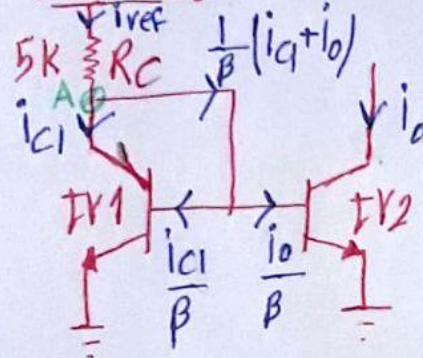 iref
5K
RC
1/β (iC1+i0)
A
iC1
i0
tr1
tr2
iC1/β
i0/β